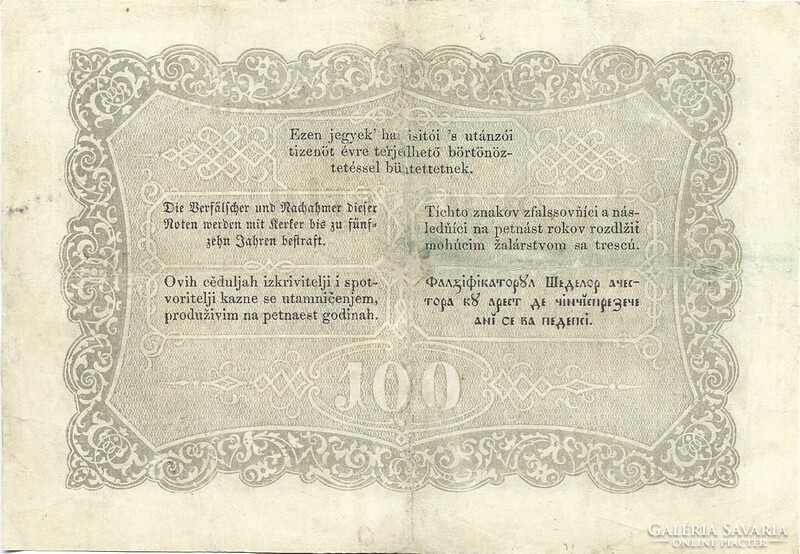 Ezen jegyek' hamisitói 's utánzói
tizenöt évre terjedhető börtönöz-
tetéssel büntettetnek.
Die Verfälscher und Nachahmer dieser
Noten werden mit Kerker bis zu fünf-
zehn Jahren bestraft.
Tíchto znakov zfalssovňíci a nás-
ledňíci na petnást rokov rozdlžiť
mohúcim žalárstvom sa trescú.
Ovih cěduljah izkrivitelji i spot-
voritelji kazne se utamničenjem,
produživim na petnaest godinah.
Фалзіфікаторꙋл Шеделор ачес-
тора кꙋ арест де чінчіспрезече
ані се ва педепсі.
100
GALÉRIA SAVARIA
ONLINE PIACTÉR